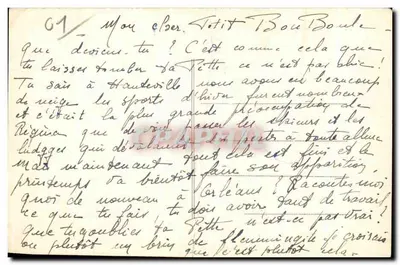 01 - Mon cher Petit Bou Boule -
que deviens-tu ? C'est comme cela que
tu laisses tomber ta Pette ce n'est pas bien !
Tu sais à Hauteville nous avons eu beaucoup
de neige les sports d'hiver furent nombreux
et c'était la plus grande préoccupation de
Régina que de voir passer les skieurs et les
luges qui la pente à toute allure
Mais maintenant tout cela est fini et le
printemps va bientôt faire son apparition,
quoi de nouveau à Orléans ? Racontes-moi
ce que tu fais, tu dois avoir tant de travail
que tu oublies ta Pette n'est-ce pas vrai !
ou plutôt un brin de flemmingite je croirais
que c'est plutôt cela -